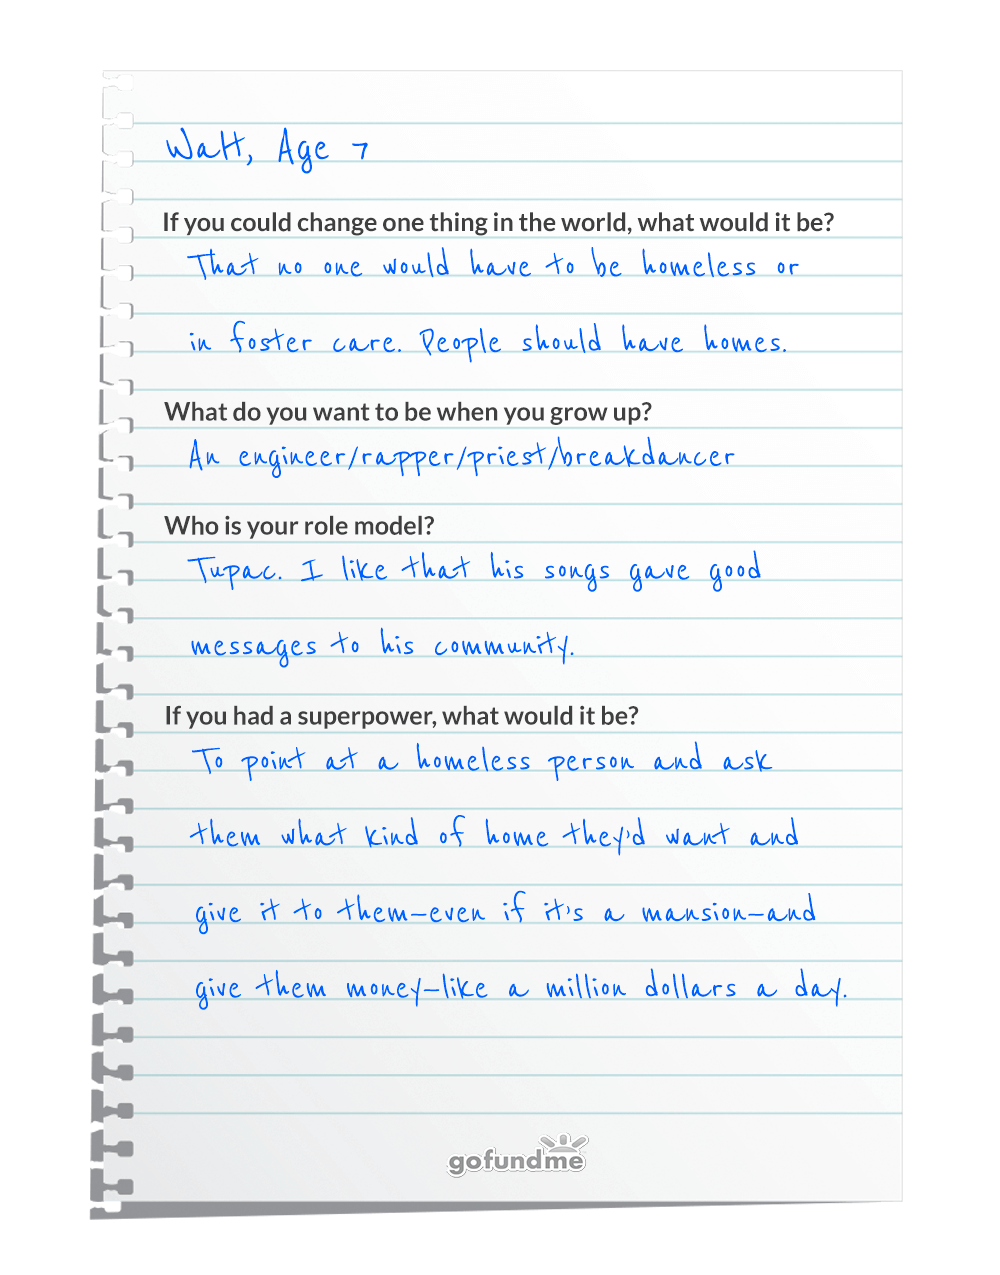 Watt, Age 7
If you could change one thing in the world, what would it be?
That no one would have to be homeless or
in foster care. People should have homes.
What do you want to be when you grow up?
An engineer/rapper/priest/breakdancer
Who is your role model?
Tupac. I like that his songs gave good
messages to his community.
If you had a superpower, what would it be?
To point at a homeless person and ask
them what kind of home they'd want and
give it to them—even if it's a mansion—and
give them money—like a million dollars a day.
gofundme